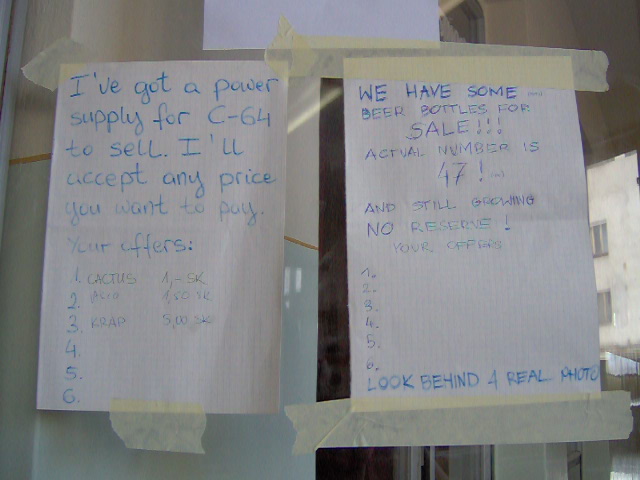 I've got a power
supply for C-64
to sell. I'll
accept any price
you want to pay.
Your offers:
1. CACTUS 1,- SK
2. 1,50 SK
3. KRAP 5,00 SK
4.
5.
6.
WE HAVE SOME ...
BEER BOTTLES FOR
SALE!!!
ACTUAL NUMBER IS
47!
AND STILL GROWING
NO RESERVE!
YOUR OFFERS
1.
2.
3.
4.
5.
6.
LOOK BEHIND 4 REAL PHOTO